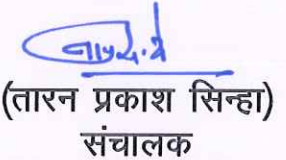 (तारन प्रकाश सिन्हा)
संचालक